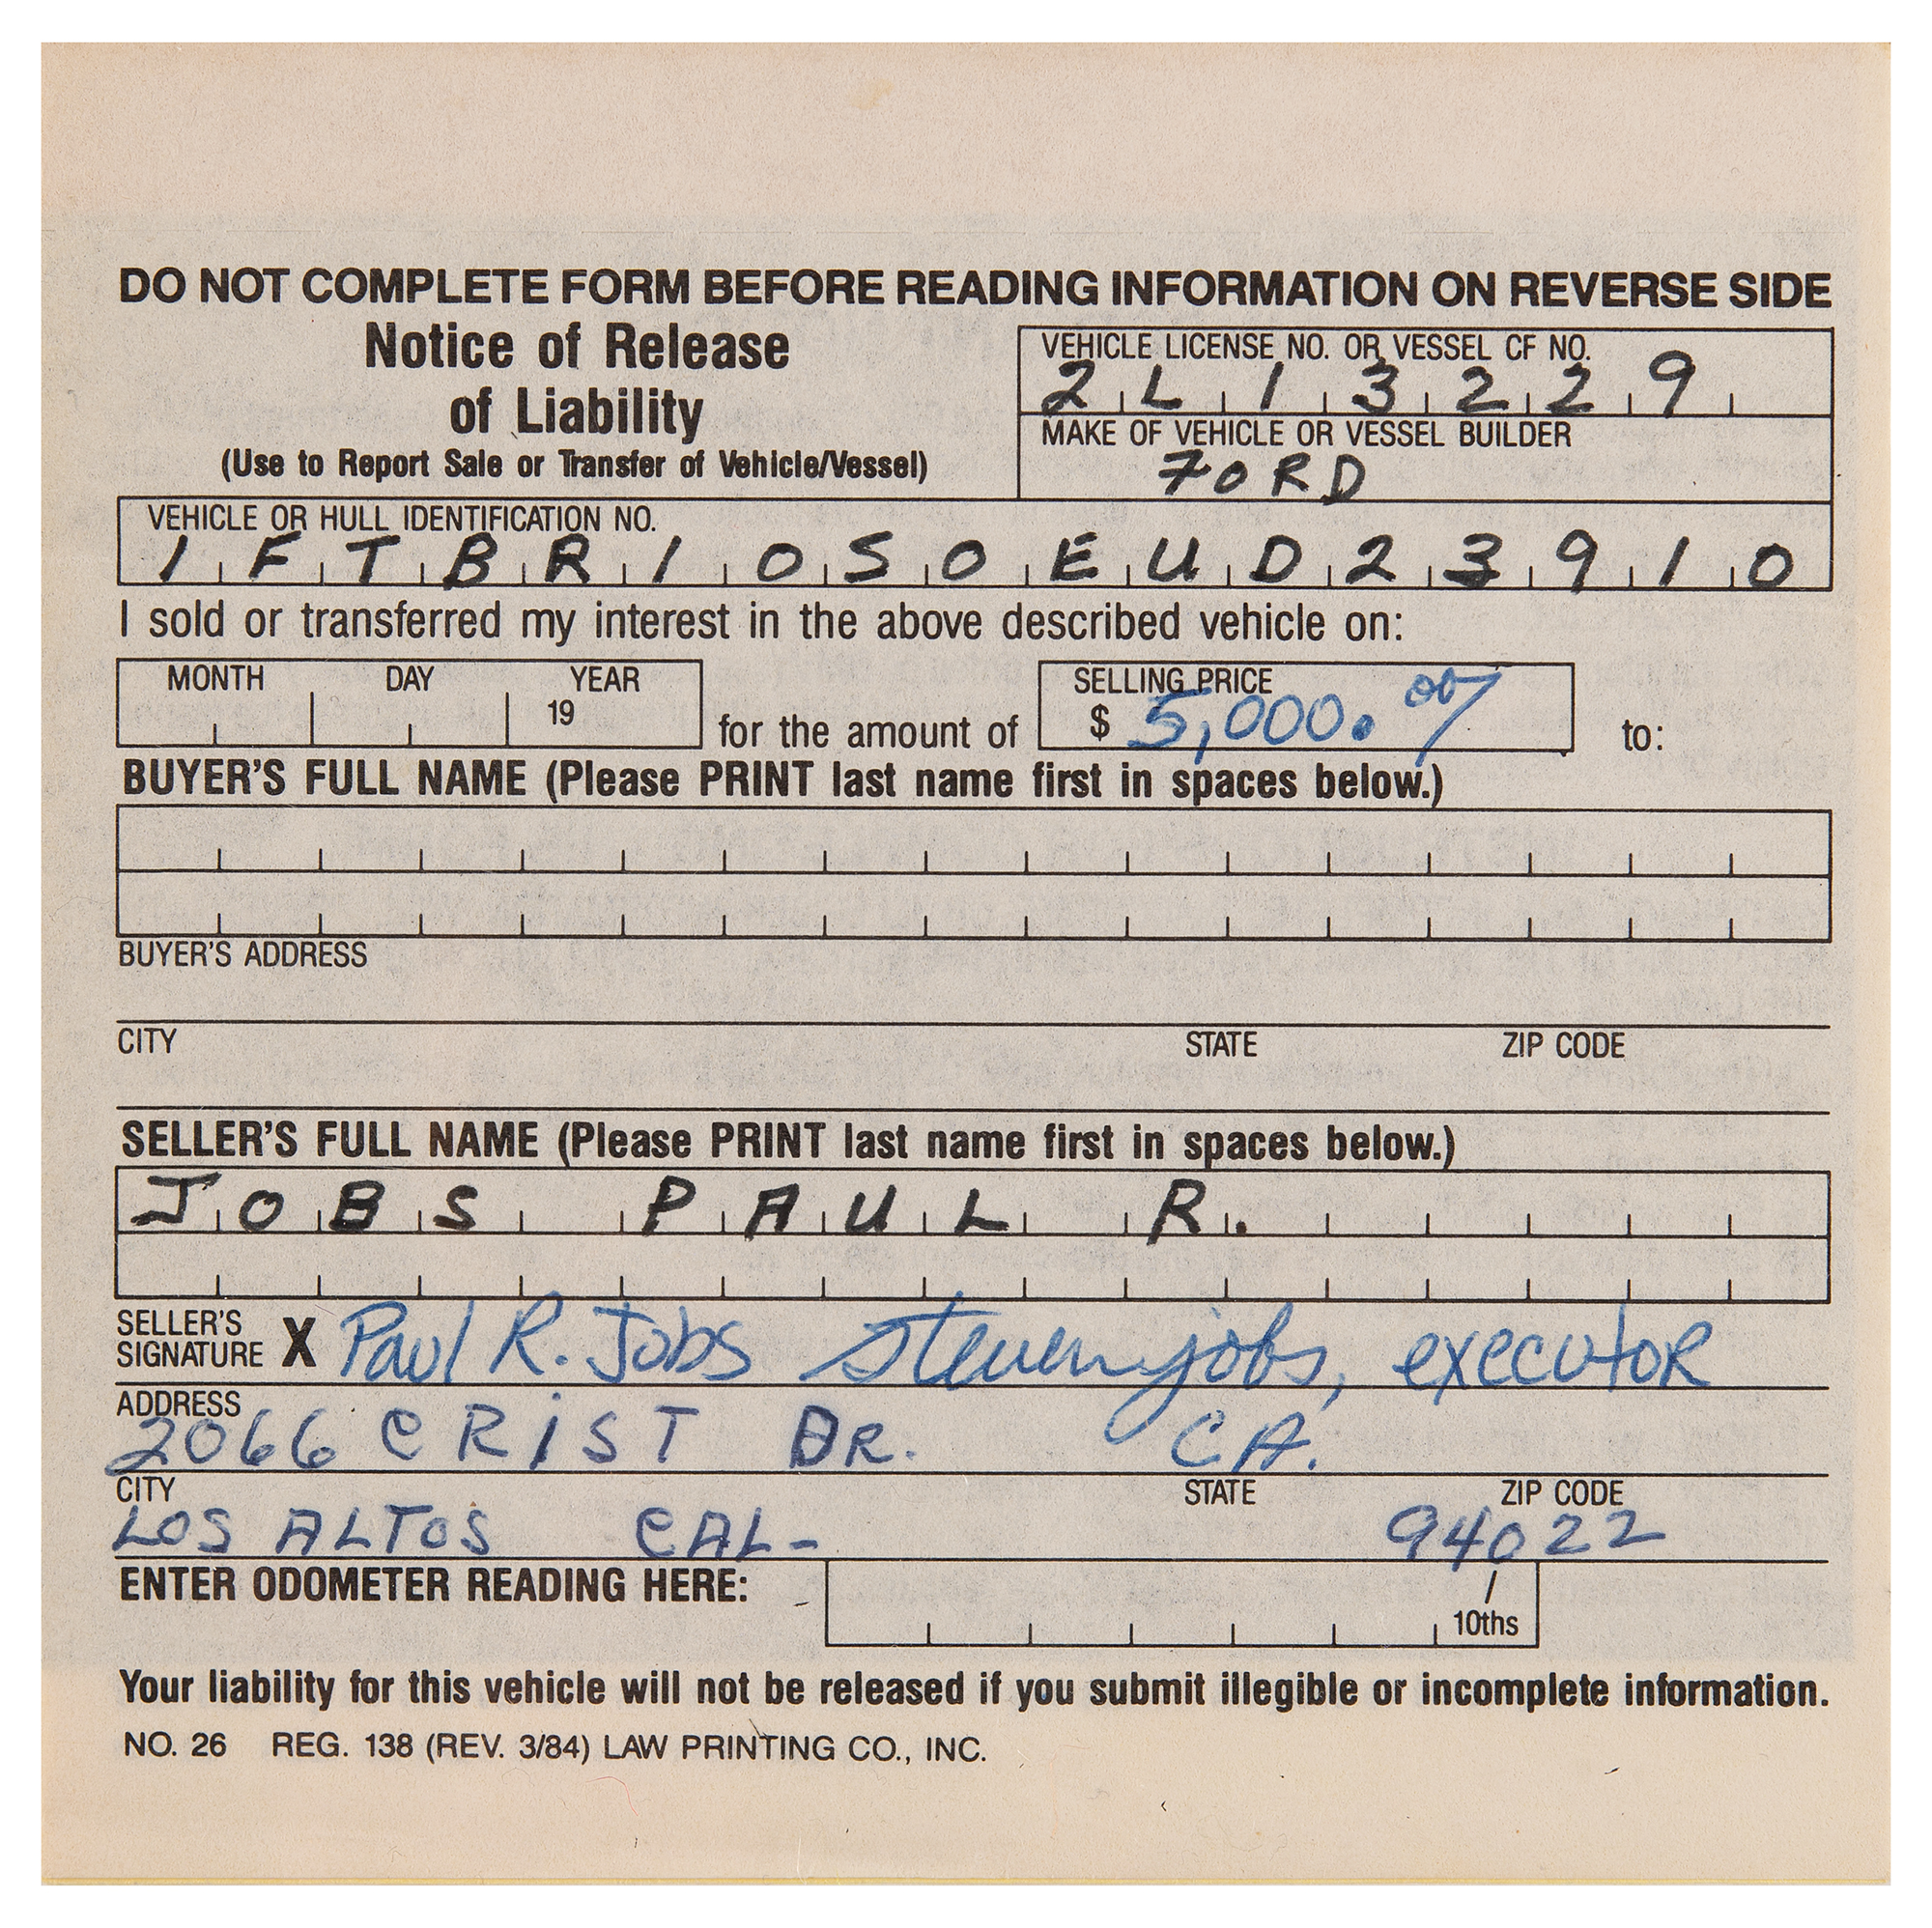 DO NOT COMPLETE FORM BEFORE READING INFORMATION ON REVERSE SIDE
Notice of Release
of Liability
(Use to Report Sale or Transfer of Vehicle/Vessel)
VEHICLE LICENSE NO. OR VESSEL CF NO.
2L13229
MAKE OF VEHICLE OR VESSEL BUILDER
FORD
VEHICLE OR HULL IDENTIFICATION NO.
1FTBR10S0EUD23910
I sold or transferred my interest in the above described vehicle on:
MONTH DAY YEAR
19
for the amount of
SELLING PRICE
$ 5,000.00
to:
BUYER'S FULL NAME (Please PRINT last name first in spaces below.)
BUYER'S ADDRESS
CITY STATE ZIP CODE
SELLER'S FULL NAME (Please PRINT last name first in spaces below.)
JOBS PAUL R.
SELLER'S
SIGNATURE X Paul R. Jobs steven jobs, executor
ADDRESS
2066 CRIST DR. CA.
CITY STATE ZIP CODE
LOS ALTOS CAL- 94022
ENTER ODOMETER READING HERE:
10ths
Your liability for this vehicle will not be released if you submit illegible or incomplete information.
NO. 26 REG. 138 (REV. 3/84) LAW PRINTING CO., INC.